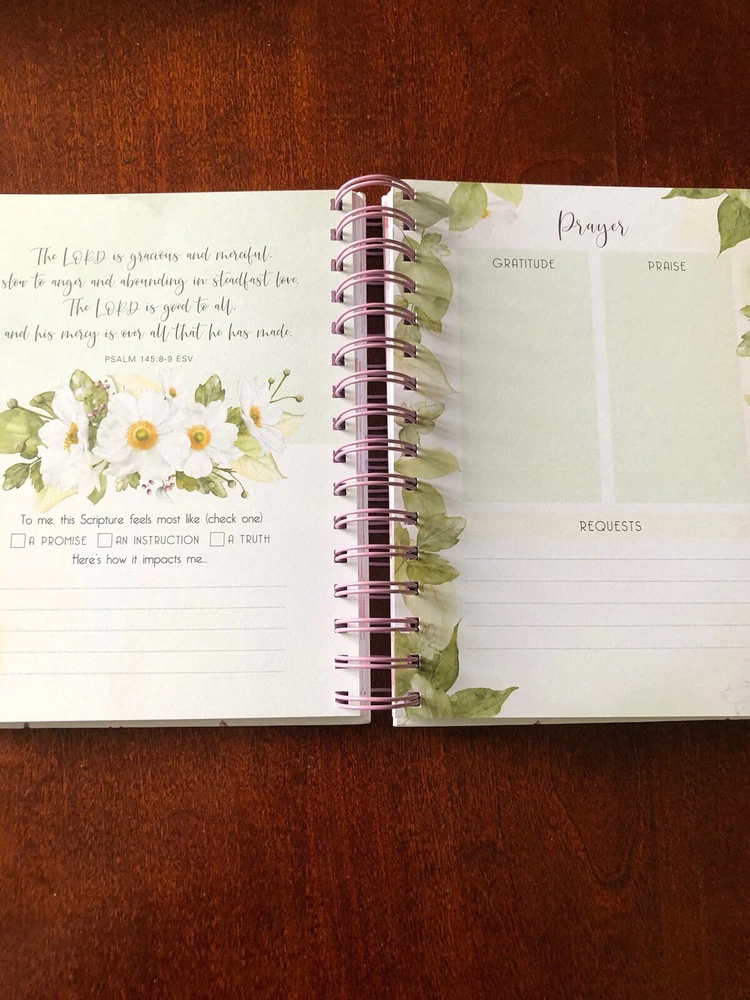 The LORD is gracious and merciful.
slow to anger and abounding in steadfast love.
The LORD is good to all,
and his mercy is over all that he has made.
PSALM 145:8-9 ESV
To me, this Scripture feels most like (check one)
A PROMISE AN INSTRUCTION A TRUTH
Here's how it impacts me...
Prayer
GRATITUDE PRAISE
REQUESTS